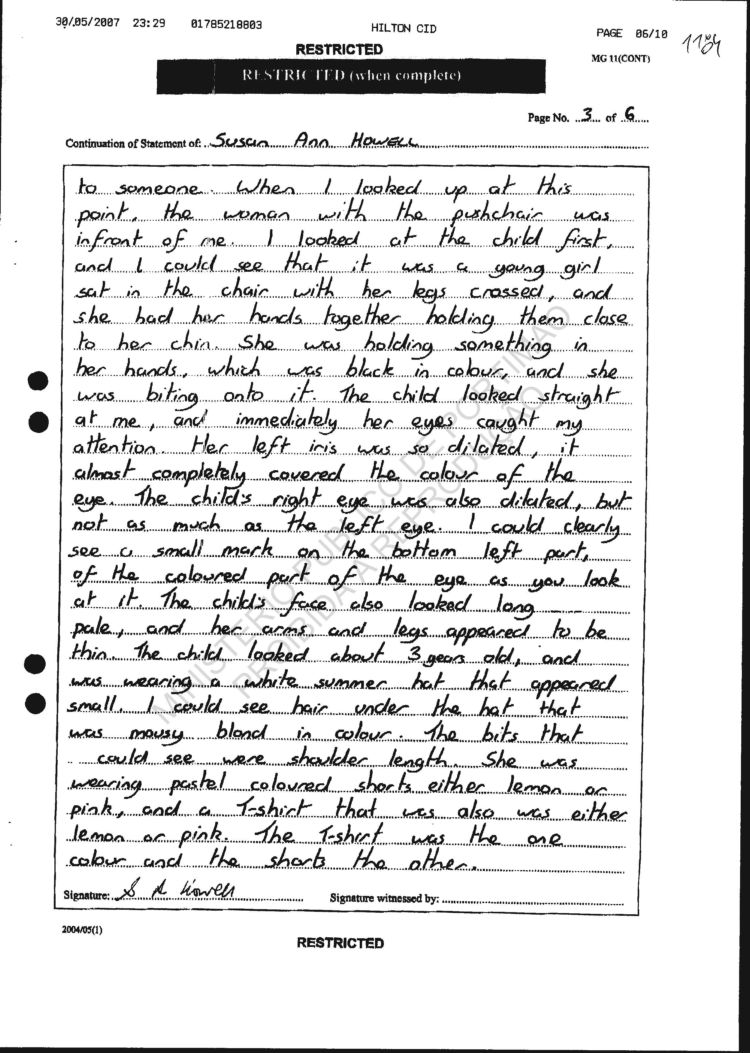 30/05/2007 23:29 01785218803 HILTON CID PAGE 06/10
1184
RESTRICTED
MG 11(CONT)
RESTRICTED (when complete)
Page No. 3 of 6
Continuation of Statement of: Susan Ann HOWELL
to someone. When I looked up at this
point, the woman with the pushchair was
infront of me. I looked at the child first,
and I could see that it was a young girl
sat in the chair with her legs crossed, and
she had her hands together holding them close
to her chin. She was holding something in
her hands, which was black in colour, and she
was biting onto it. The child looked straight
at me, and immediately her eyes caught my
attention. Her left iris was so dilated, it
almost completely covered the colour of the
eye. The child's right eye was also dilated, but
not as much as the left eye. I could clearly
see a small mark on the bottom left part,
of the coloured part of the eye as you look
at it. The child's face also looked long
pale, and her arms and legs appeared to be
thin. The child looked about 3 years old, and
was wearing a white summer hat that appeared
small. I could see hair under the hat that
was mousy blond in colour. The bits that
could see were shoulder length. She was
wearing pastel coloured shorts either lemon or
pink, and a T-shirt that was also was either
lemon or pink. The T-shirt was the one
colour and the shorts the other.
MINISTERIO PUBLICO DE PORTIMAO
PROIBIDA A REPRODUÇAO
Signature: S A Howell Signature witnessed by:
2004/05(1)
RESTRICTED